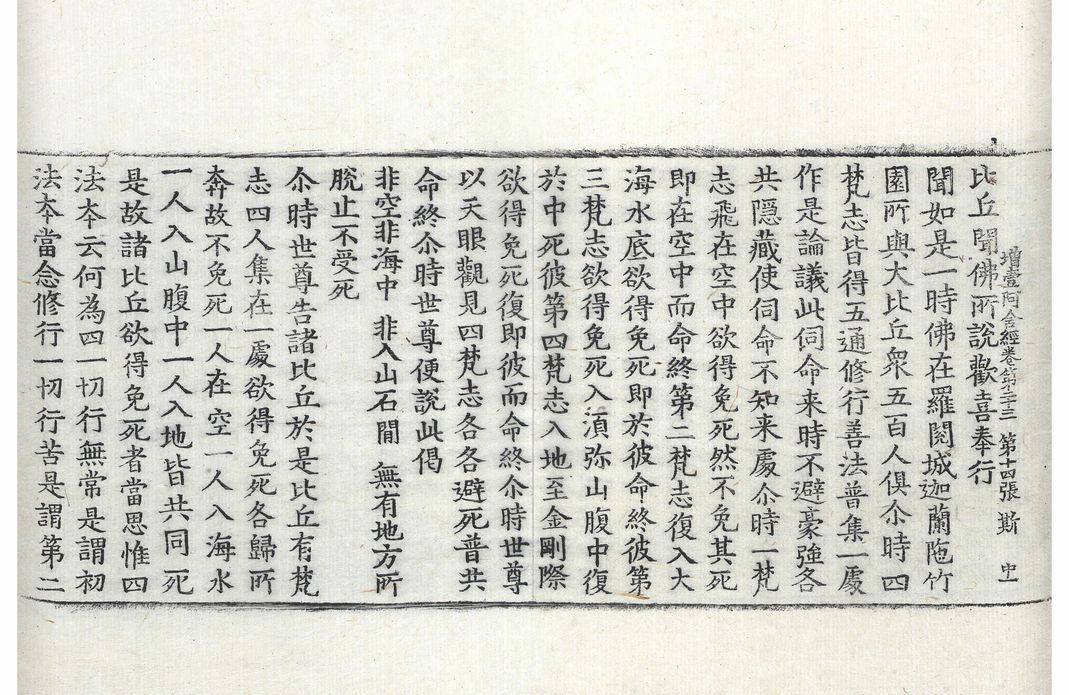 增壹阿含經卷第二十三 第十四張 斯
比丘聞佛所說歡喜奉行
聞如是一時佛在羅閱城迦蘭陁竹
園所與大比丘衆五百人俱尒時四
梵志皆得五通修行善法普集一處
作是論議此伺命来時不避豪強各
共隱藏使伺命不知来處尒時一梵
志飛在空中欲得免死然不免其死
即在空中而命終第二梵志復入大
海水底欲得免死即於彼命終彼第
三梵志欲得免死入湏弥山腹中復
於中死彼第四梵志入地至金剛際
欲得免死復即彼而命終尒時世尊
以天眼觀見四梵志各各避死普共
命終尒時世尊便說此偈
非空非海中 非入山石間 無有地方所
脫止不受死
尒時世尊告諸比丘於是比丘有梵
志四人集在一處欲得免死各歸所
奔故不免死一人在空一人入海水
一人入山腹中一人入地皆共同死
是故諸比丘欲得免死者當思惟四
法夲云何為四一切行無常是謂初
法夲當念修行一切行苦是謂第二